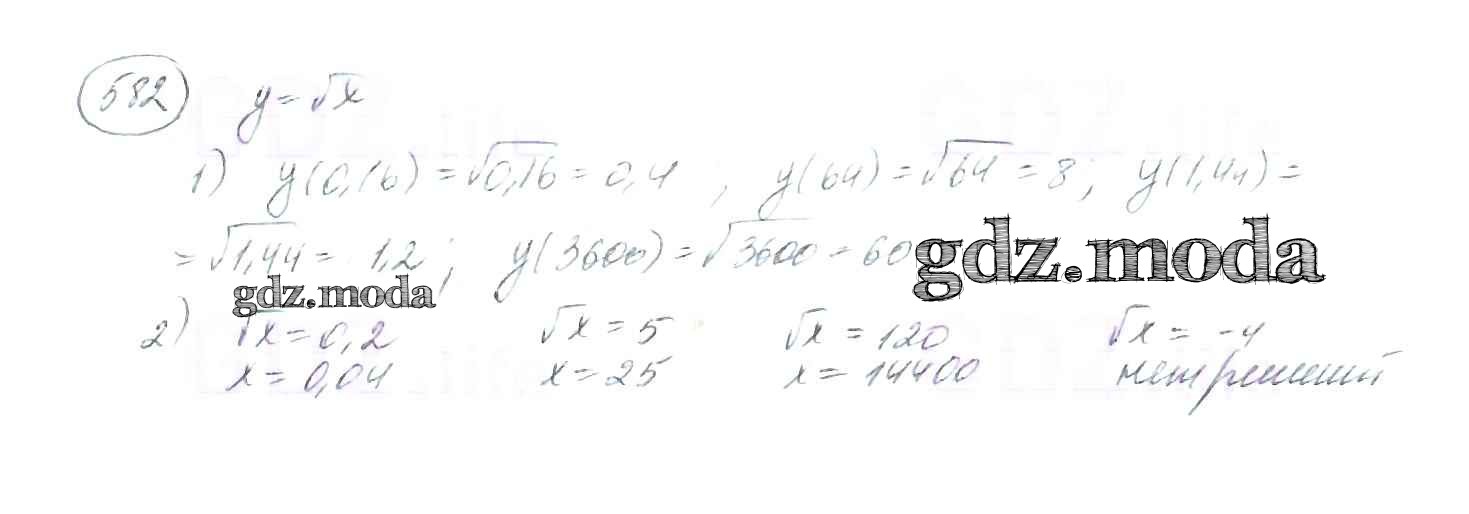 582 y = √x
1) y(0,16) = √0,16 = 0,4 ; y(64) = √64 = 8; y(1,44) =
= √1,44 = 1,2 ; y(3600) = √3600 = 60 gdz.moda
gdz.moda
2) √x = 0,2 √x = 5 √x = 120 √x = -4
x = 0,04 x = 25 x = 14400 нет решений